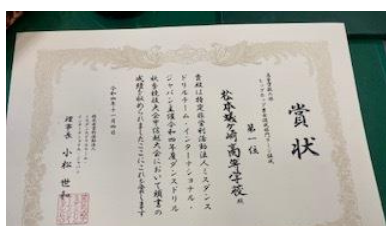 賞状
第一位
松本蟻ケ崎高等学校殿
貴校は特定非営利活動法人ミスダンス
ドリルチーム・インターナショナル・
ジャパン主催令和四年度ダンスドリル
秋季競技大会甲信越大会において頭書の
成績を収められましたここにこれを賞します
令和四年十一月四日
理事長 小松世和